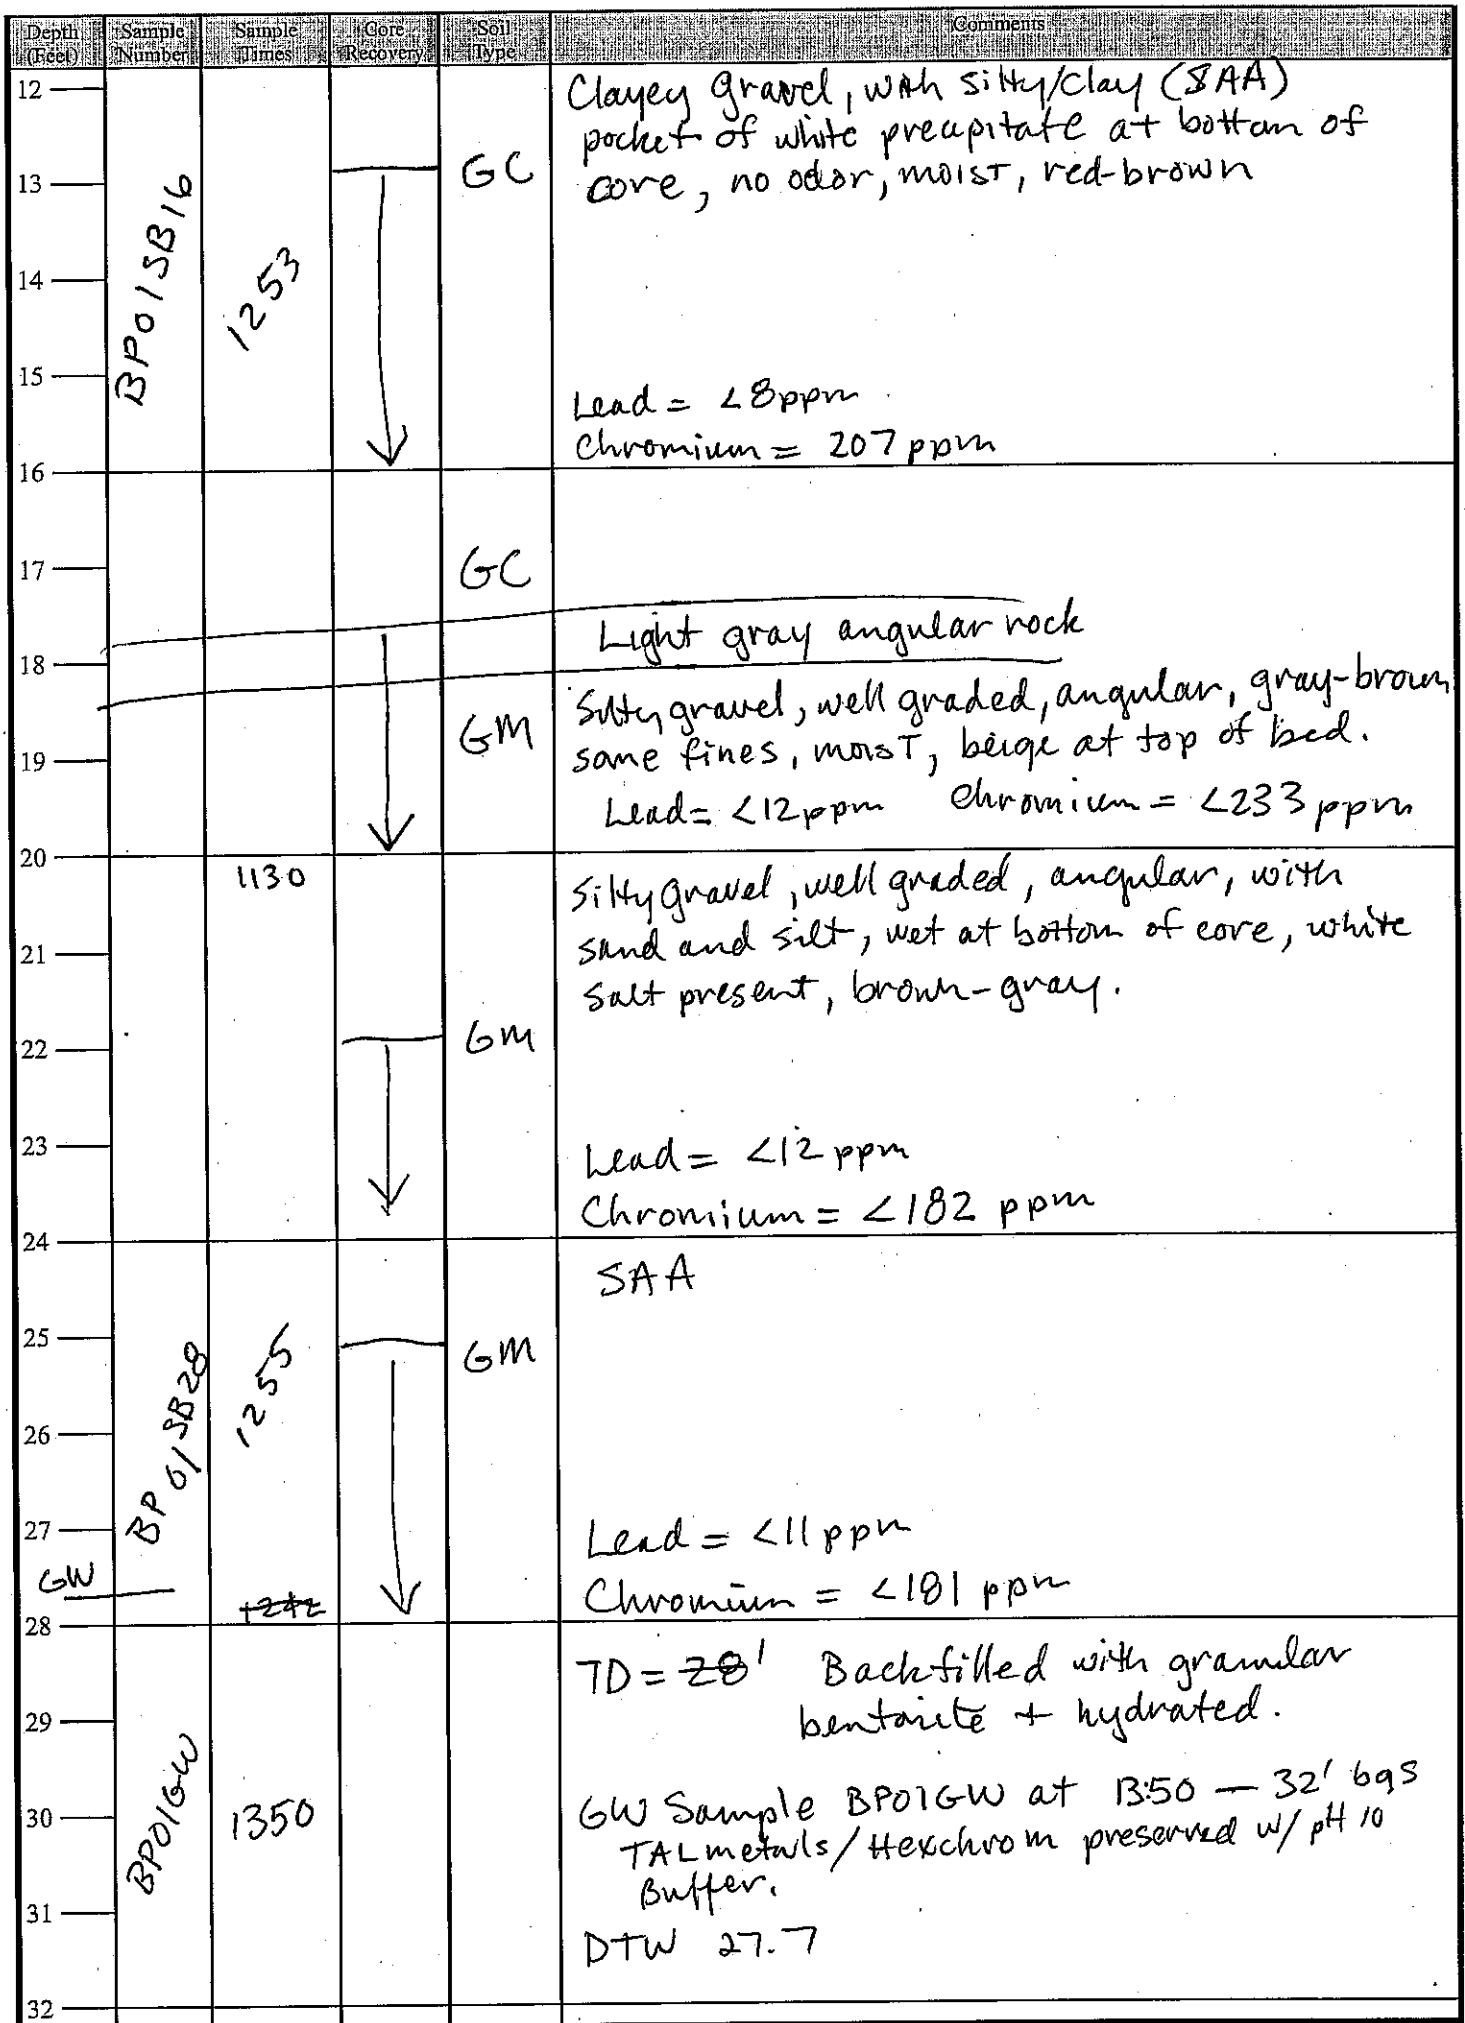 Depth (Feet) Sample Number Sample Times Core Recovery Soil Type Comments
12
Clayey gravel, with silty/clay (SAA)
pocket of white precipitate at bottom of
13 GC core, no odor, moist, red-brown
BP01SB16
1253
14
15
Lead = <8ppm
Chromium = 207 ppm
16
17 GC
Light gray angular rock
18
Silty gravel, well graded, angular, gray-brown
GM
19 some fines, moist, beige at top of bed.
Lead= <12ppm Chromium = <233 ppm
20
1130 Silty gravel, well graded, angular, with
21 sand and silt, wet at bottom of core, white
salt present, brown-gray.
22 GM
23 Lead= <12 ppm
Chromium = <182 ppm
24
SAA
25 GM
BP01SB28
1255
26
27 Lead = <11ppm
GW
1242 Chromium = <181 ppm
28
TD = 28' Backfilled with granular
29 bentonite + hydrated.
BP01GW
30 1350 GW Sample BP01GW at 13:50 — 32' bgs
TAL metals/Hexchrom preserved w/ pH 10
Buffer.
31
DTW 27.7
32